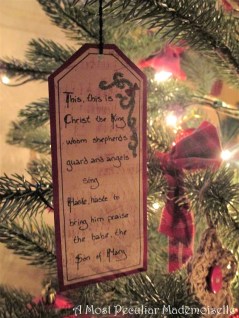 This, this is
Christ the King
whom shepherds
guard and angels
sing
Haste, haste to
bring him praise
the babe, the
Son of Mary
A Most Peculiar Mademoiselle